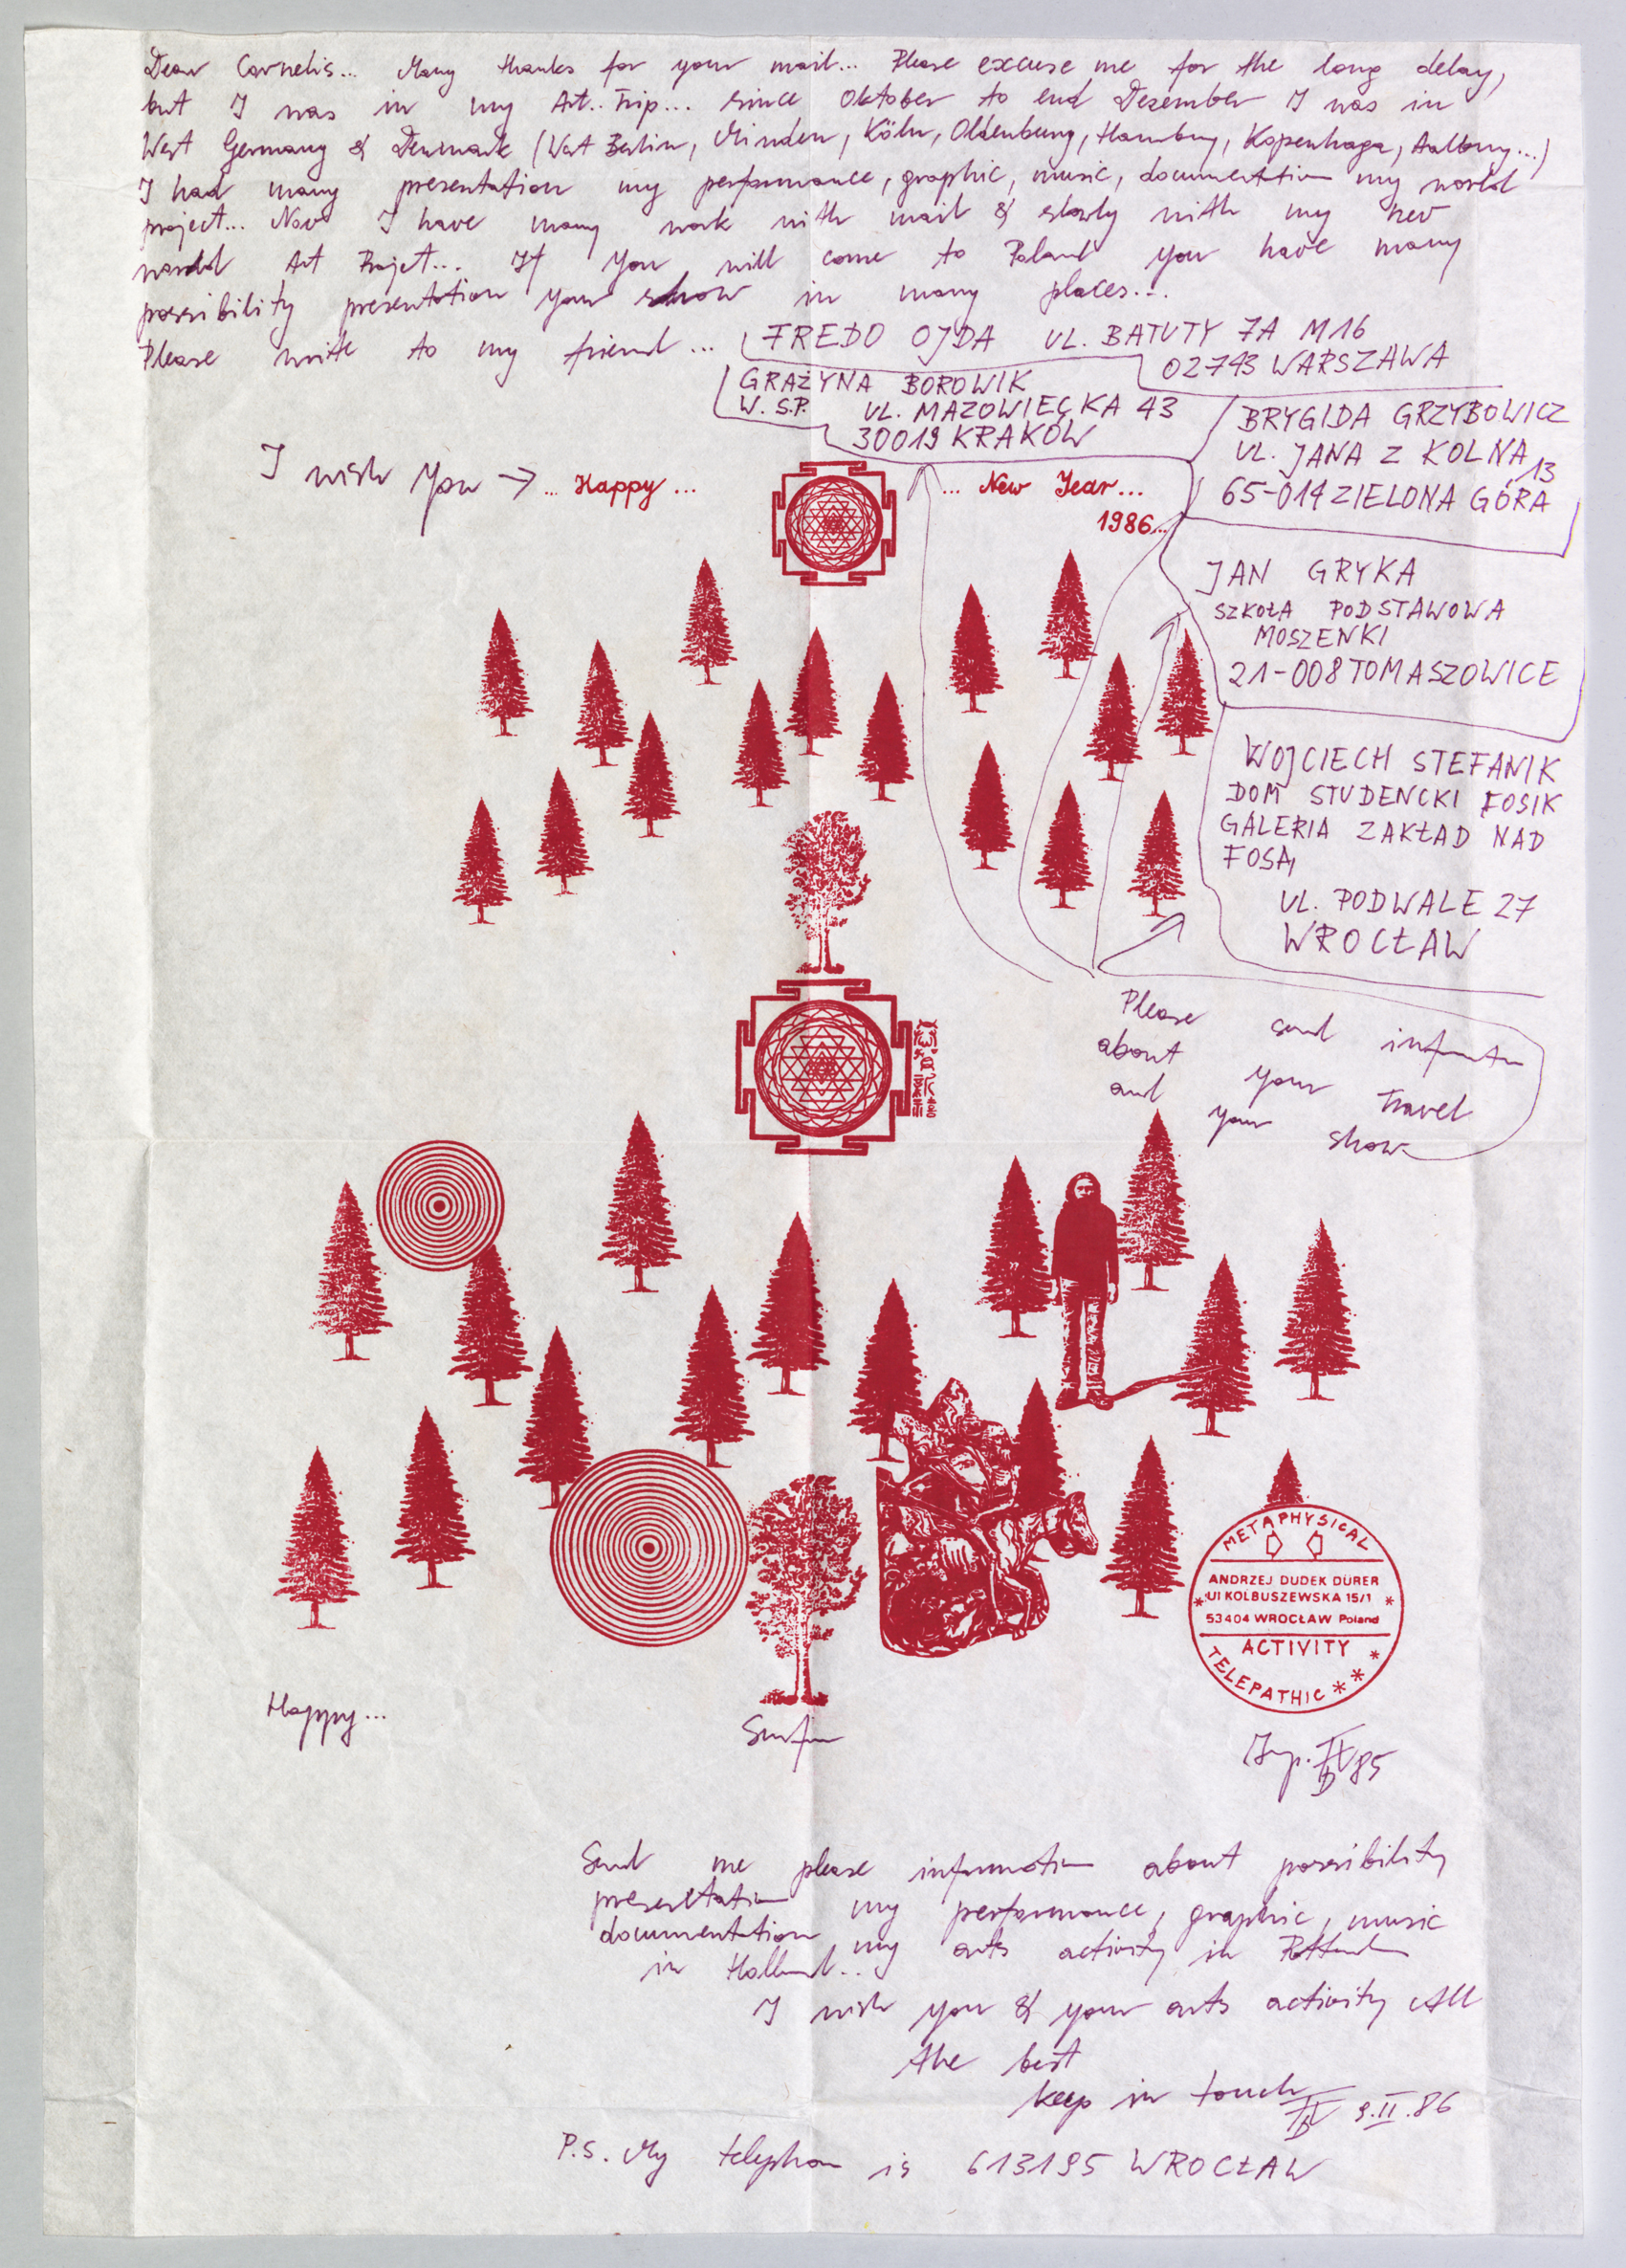 Dear Cornelis... Many thanks for your mail... Please excuse me for the long delay,
but I was in my Art.. Trip... since Oktober to end Dezember I was in
West Germany & Denmark (West Berlin, Minden, Köln, Oldenburg, Hamburg, Kopenhaga, Aalborg...)
I had many presentation my performance, graphic, music, documentation my world
project... Now I have many work with mail & slowly with my new
world Art Projet... If you will come to Poland you have many
possibility presentation your show in many places...
Please write to my friend ...
FREDO OJDA UL. BATUTY 7A M16
02743 WARSZAWA
GRAŻYNA BOROWIK
W.S.P. UL. MAZOWIECKA 43
30019 KRAKÓW
BRYGIDA GRZYBOWICZ
UL. JANA Z KOLNA 13
65-014 ZIELONA GÓRA
I wish you → ... Happy ... ... New Year...
1986..
JAN GRYKA
SZKOŁA PODSTAWOWA
MOSZENKI
21-008 TOMASZOWICE
WOJCIECH STEFANIK
DOM STUDENCKI FOSIK
GALERIA ZAKŁAD NAD
FOSĄ
UL. PODWALE 27
WROCŁAW
Please send
about your travel
and your show
METAPHYSICAL
ANDRZEJ DUDEK DÜRER
Ul KOLBUSZEWSKA 15/1
53404 WROCŁAW Poland
ACTIVITY
TELEPATHIC
Happy...
85
Send me please information about possibility
presentation my performance, graphic, music
documentation my arts activity in
in Holland...
I wish you & your arts activity All
the best
keep in touch
9.II.86
P.S. My telephon is 613195 WROCŁAW